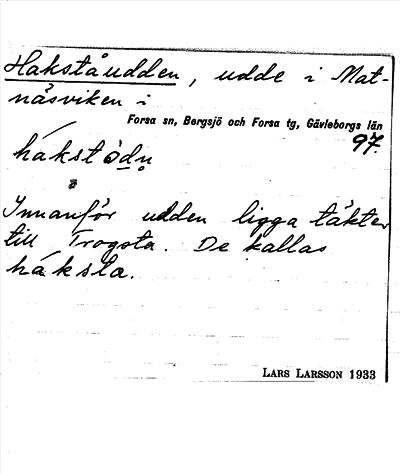 Hakståudden, udde i Mat-
näsviken i
Forsa sn, Bergsjö och Forsa tg, Gävleborgs län
97.
hákstòdṇ
Innanför udden ligga täkter
till Trogsta. De kallas
háksta.
LARS LARSSON 1933